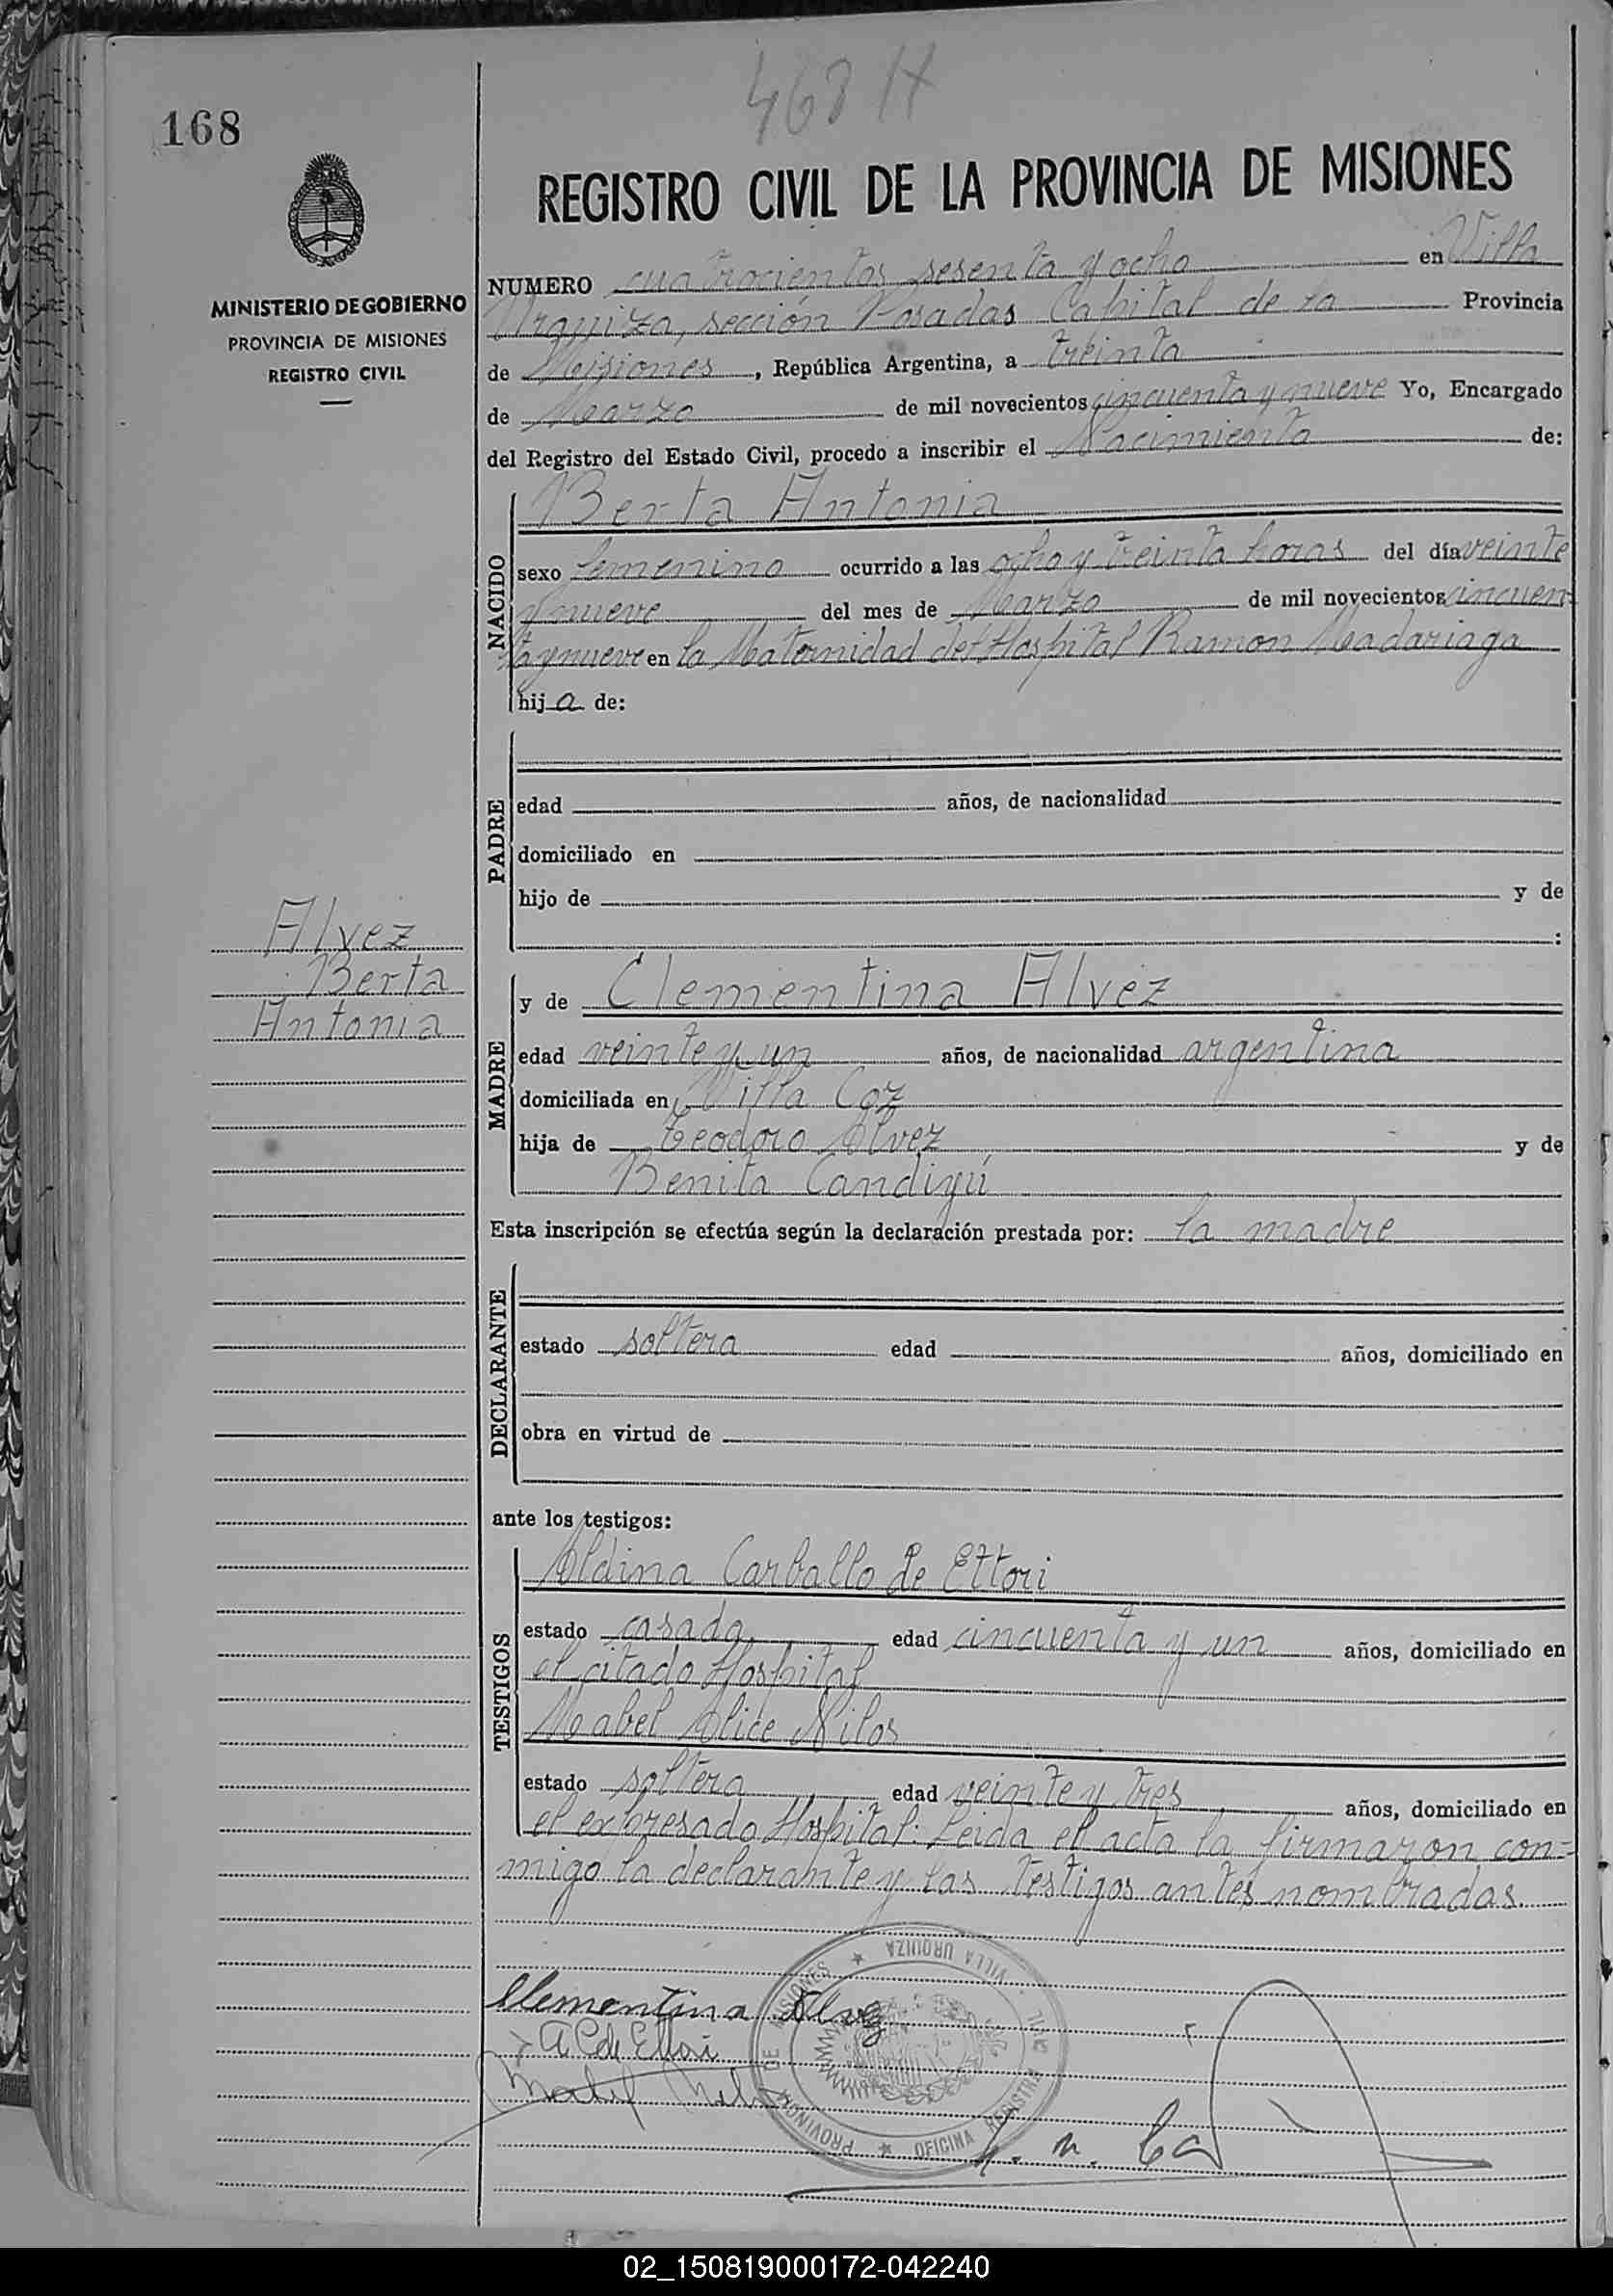 468 H
168
REGISTRO CIVIL DE LA PROVINCIA DE MISIONES
MINISTERIO DE GOBIERNO
PROVINCIA DE MISIONES
REGISTRO CIVIL
NUMERO cuatrocientos sesenta y ocho en Villa
Urquiza, sección Posadas Capital de la Provincia
de Misiones, República Argentina, a treinta
de Marzo de mil novecientos cincuenta y nueve Yo, Encargado
del Registro del Estado Civil, procedo a inscribir el Nacimiento de:
NACIDO
Berta Antonia
sexo femenino ocurrido a las ocho y treinta horas del día veinte
y nueve del mes de Marzo de mil novecientos cincuen
ta y nueve en la Maternidad del Hospital Ramon Madariaga
hija de:
PADRE
edad años, de nacionalidad
domiciliado en
hijo de y de
:
Alvez
Berta
Antonia
MADRE
y de Clementina Alvez
edad veinte y un años, de nacionalidad argentina
domiciliada en Villa Coz
hija de Teodoro Alvez y de
Benita Candiyú
Esta inscripción se efectúa según la declaración prestada por: la madre
DECLARANTE
estado soltera edad años, domiciliado en
obra en virtud de
ante los testigos:
TESTIGOS
Aldina Carballo de Ettori
estado casada edad cincuenta y un años, domiciliado en
el citado Hospital
Mabel Alice Nilos
estado soltera edad veinte y tres años, domiciliado en
el expresado Hospital: Leida el acta la firmaron con=
migo la declarante y las testigos antes nombradas.
Clementina Alvez
A C de Ettori
PROVINCIA DE MISIONES ★ VILLA URQUIZA
OFICINA REGISTRAL
02_150819000172-042240